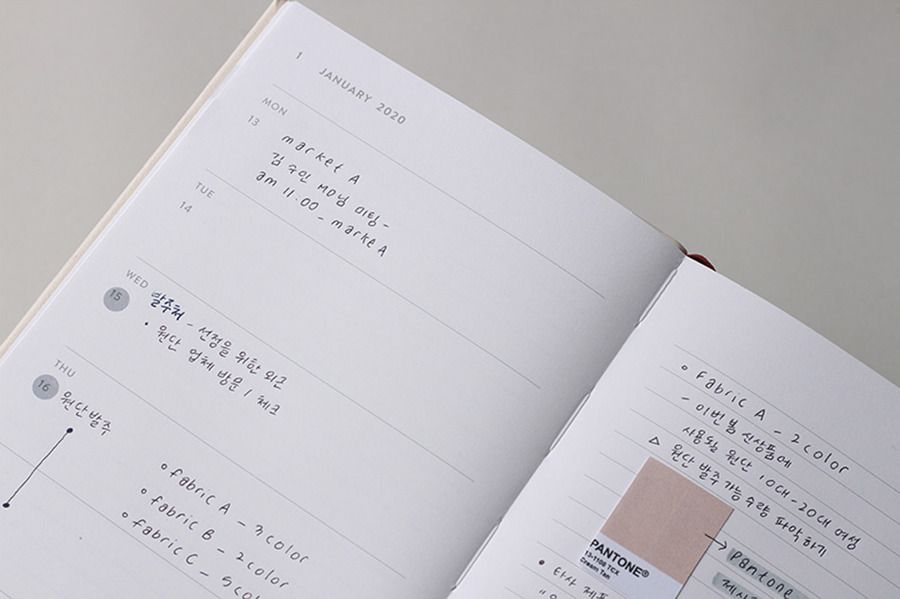 1 JANUARY 2020
MON
13
market A
김수인 MD님 미팅-
am 11.00 - marke A
TUE
14
WED
15
발주처 - 선정을 위한 외근
• 원단 업체 방문 / 체크
THU
16
원단발주
fabric A - 3 color
fabric B - 2 color
fabric C - 5 co
fabric A - 2 color
- 이번 봄 신상품에
사용될 원단 10대-20대 여성
△ 원단 발주 가능 수량 파악하기
PANTONE®
13-1108 TCX
Cream Tan
→ pantone
• 타사 제품